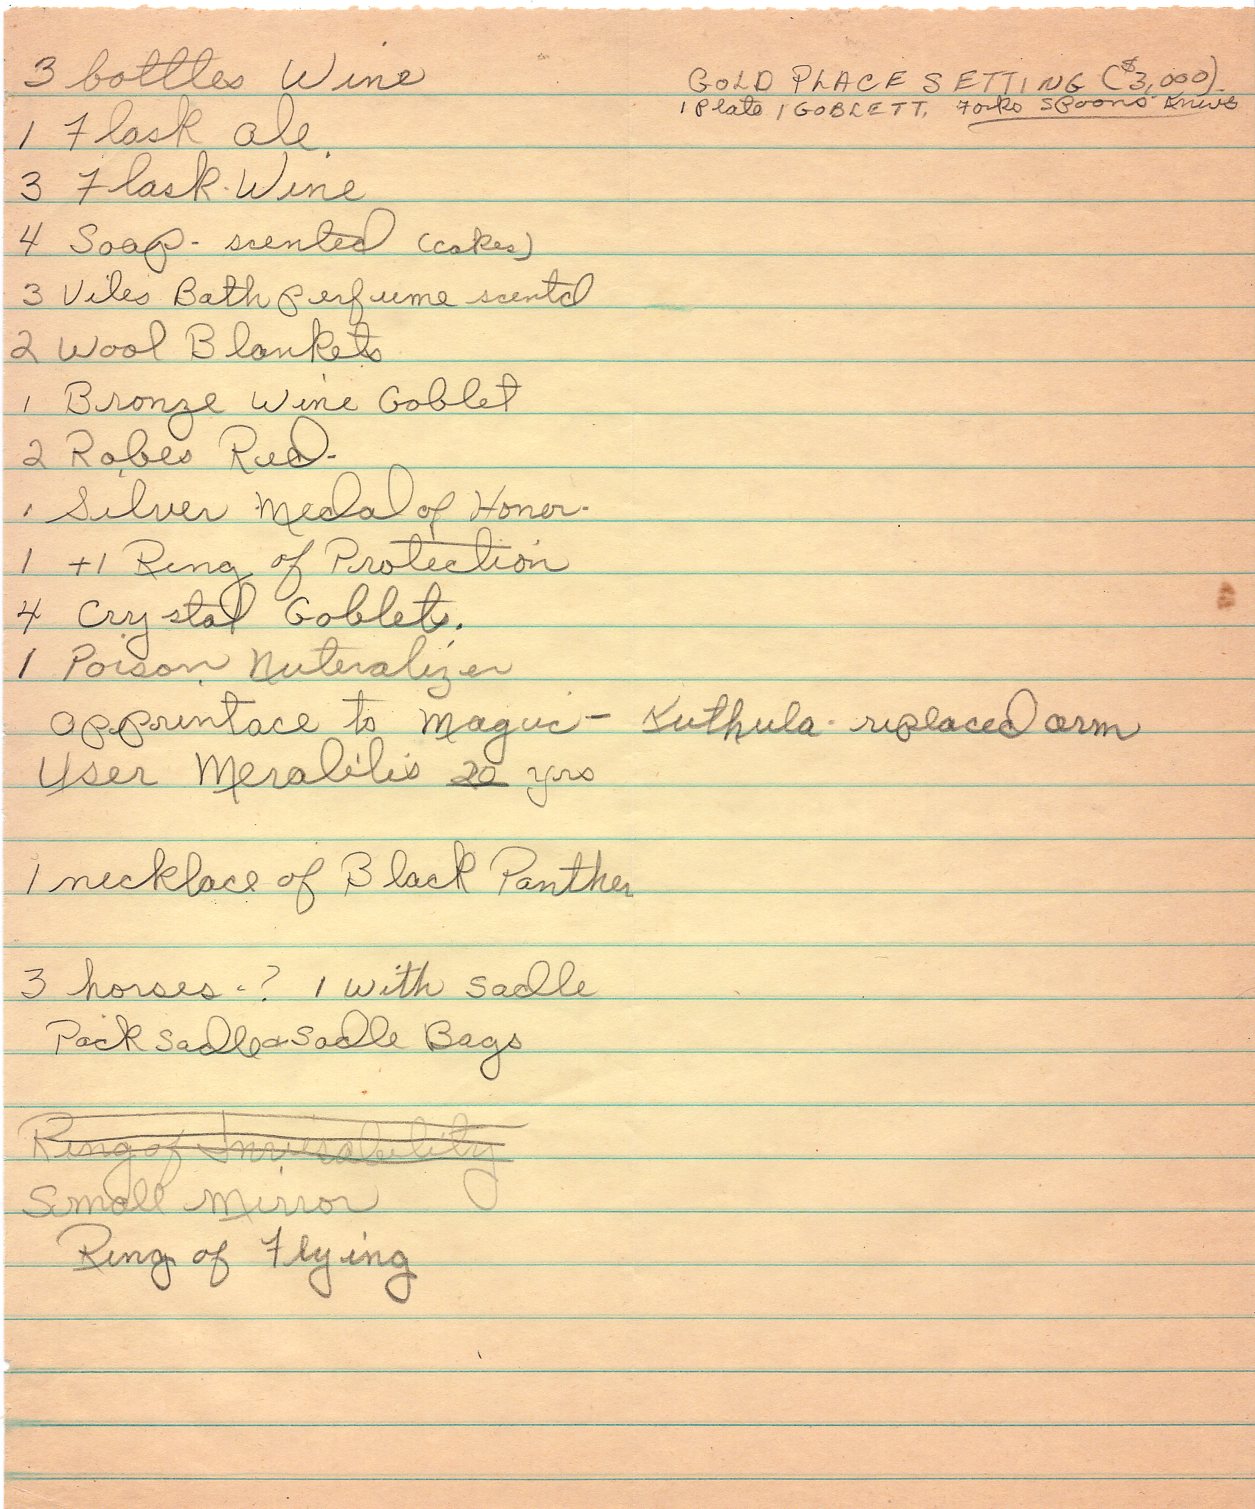 3 bottles Wine
GOLD PLACE SETTING ($3,000).
1 Plate 1 GOBLETT. Forks Spoons Knives
1 Flask ale.
3 Flask. Wine
4 Soap - scented (cakes)
3 Viles Bath perfume scentd
2 Wool Blankets
1 Bronze Wine Goblet
2 Robes Red -
1 Silver Medal of Honor -
1 +1 Ring of Protection
4 Crystal Goblets.
1 Poison Nuteralizer
apprintace to Maguc - Kuthula - replaced arm
User Meralilis 20 yrs
1 necklace of Black Panther
3 horses - ? 1 with sadle
Pack sadle & sadle Bags
Ring of Invisability
Small Mirror
Ring of Flying